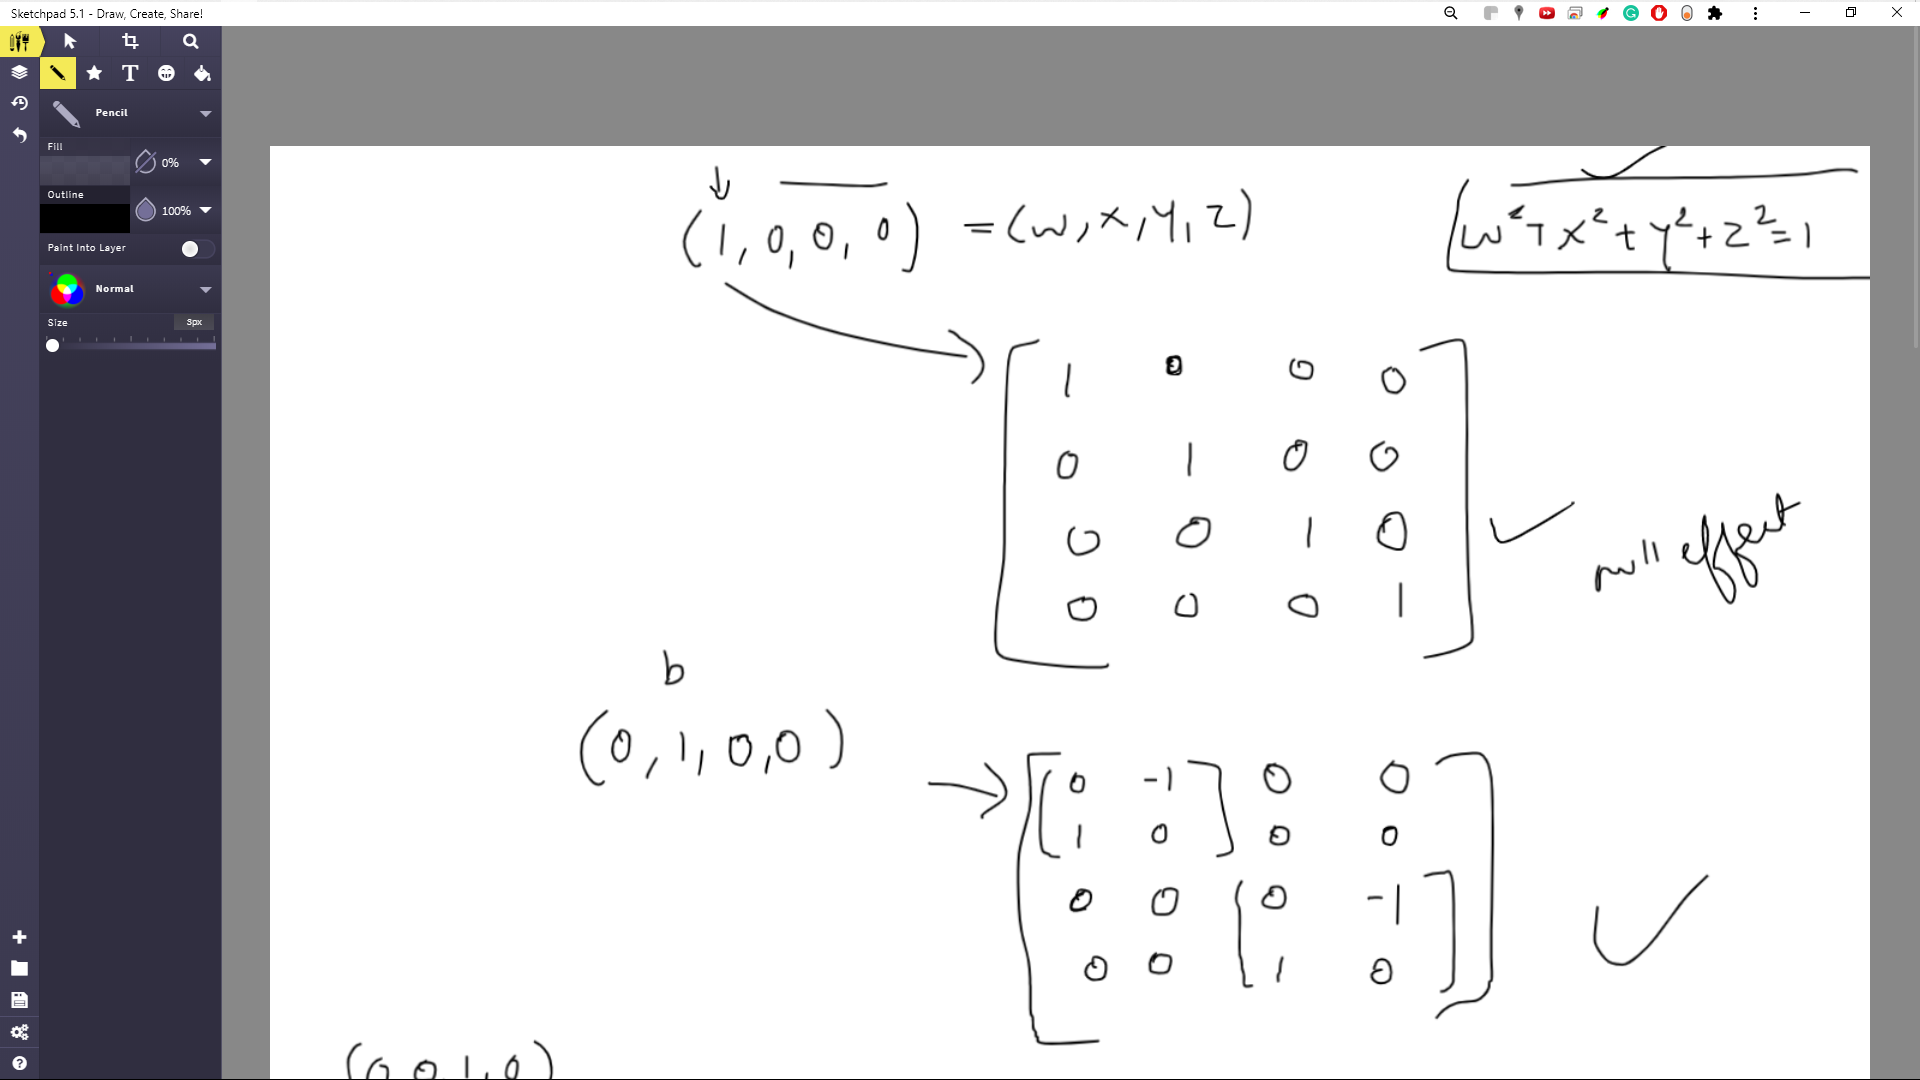 Sketchpad 5.1 - Draw, Create, Share!
Pencil
Fill
0%
Outline
100%
Paint Into Layer
Normal
Size
3px
(1, 0, 0, 0) = (w, x, y, z)
w² + x² + y² + z² = 1
1 0 0 0
0 1 0 0
0 0 1 0
0 0 0 1
null effect
b
(0, 1, 0, 0)
0 -1 0 0
1 0 0 0
0 0 0 -1
0 0 1 0
(0 0 1, 0)